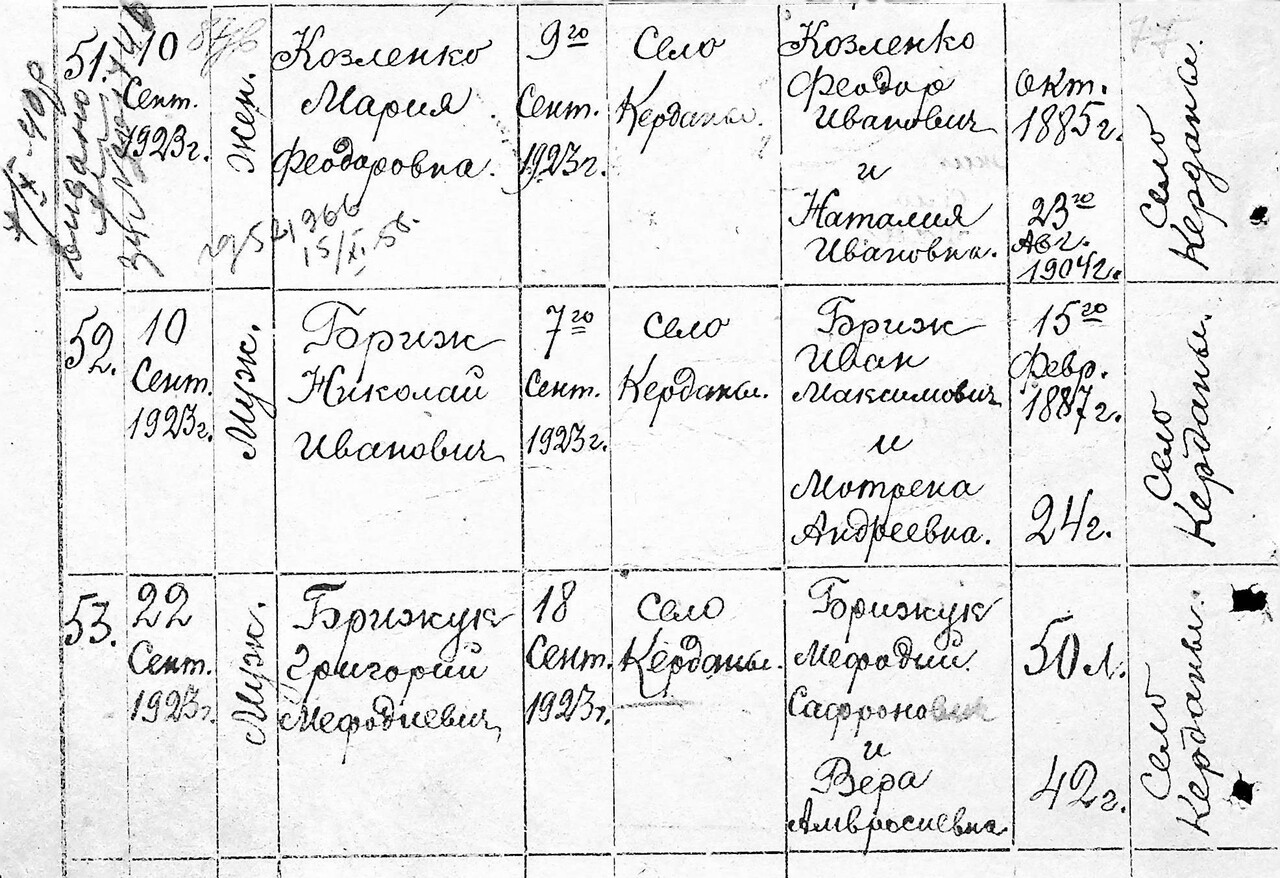 51.
10
Сент.
1923г.
Жен.
Козленко
Мария
Феодоровна.
9го
Сент.
1923г.
Село
Керданы.
Козленко
Феодор
Иванович
и
Наталия
Ивановна.
окт.
1885г.
23го
Авг.
1904г.
Село
Керданы.
15/XI.56.
7/X-40р
видано
52.
10
Сент.
1923г.
Муж.
Бриж
Николай
Иванович
7го
Сент.
1923г.
село
Керданы.
Бриж
Иван
Максимович
и
Мотрена
Андреевна.
15го
Февр.
1887г.
24г.
Село
Керданы.
53.
22
Сент.
1923г.
Муж.
Брижук
Григорий
Мефодиевич
18
Сент.
1923г.
Село
Керданы.
Брижук
Мефодий
Сафронович
и
Вера
Амвросиевна
50л.
42г.
Село
Керданы.